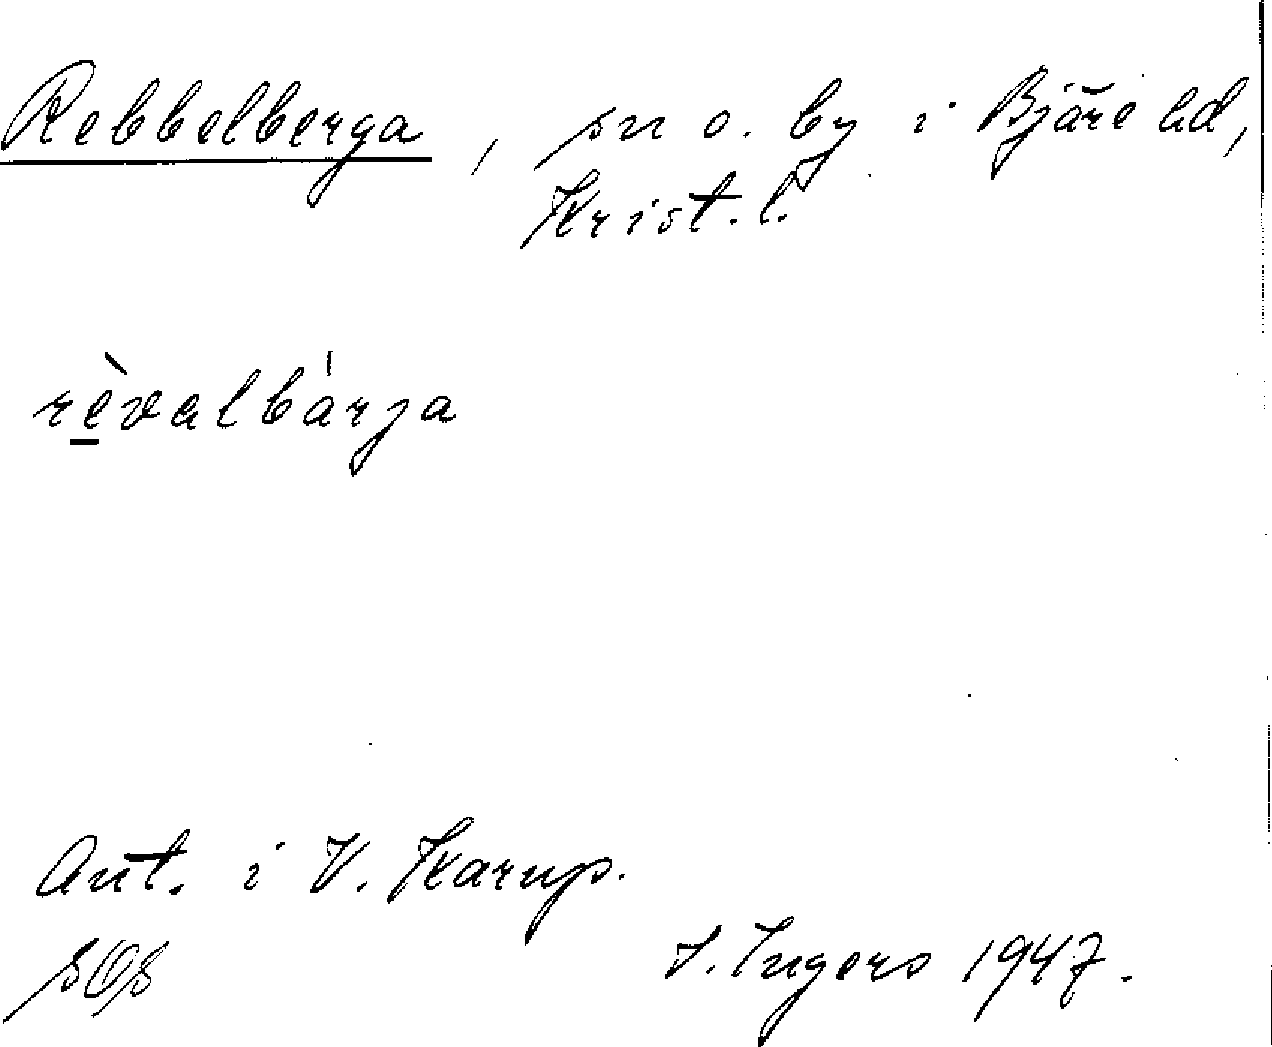 Rebbelberga, sn o. by i Bjäre hd,
Krist. l.
rèvalba̍rja
Ant. i V. Karup.
I. Ingers 1947.